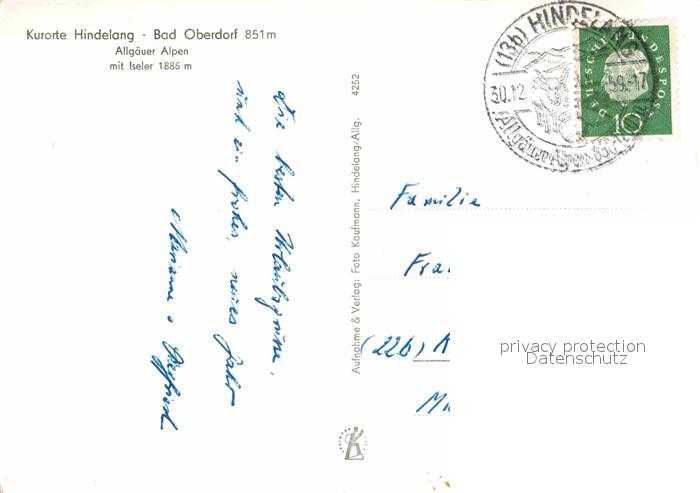 Kurorte Hindelang - Bad Oberdorf 851m
Allgäuer Alpen
mit Iseler 1886 m
Die besten Urlaubsgrüße,
und ein frohes, neues Jahr
Marianne & Siegfried
4252
Aufnahme & Verlag: Foto Kaufmann, Hindelang/Allg.
(13b) HINDELANG
30.12 59-17
Allgäuer Alpen 850
DEUTSCHE BUNDESPOST
10
Familie
Fra
(22b) K
privacy protection
Datenschutz